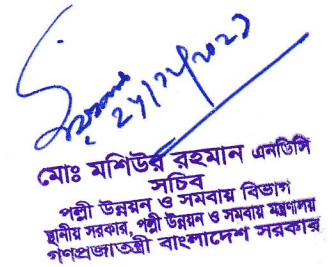 মোঃ মশিউর রহমান এনডিসি
সচিব
পল্লী উন্নয়ন ও সমবায় বিভাগ
স্থানীয় সরকার, পল্লী উন্নয়ন ও সমবায় মন্ত্রণালয়
গণপ্রজাতন্ত্রী বাংলাদেশ সরকার